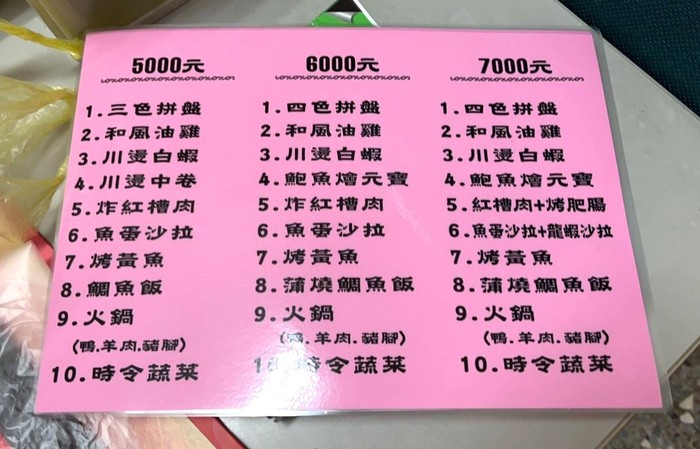 5000元
1.三色拼盤
2.和風油雞
3.川燙白蝦
4.川燙中卷
5.炸紅槽肉
6.魚蛋沙拉
7.烤黃魚
8.鯛魚飯
9.火鍋
(鴨.羊肉.豬腳)
10.時令蔬菜
6000元
1.四色拼盤
2.和風油雞
3.川燙白蝦
4.鮑魚燴元寶
5.炸紅槽肉
6.魚蛋沙拉
7.烤黃魚
8.蒲燒鯛魚飯
9.火鍋
(鴨.羊肉.豬腳)
10.時令蔬菜
7000元
1.四色拼盤
2.和風油雞
3.川燙白蝦
4.鮑魚燴元寶
5.紅槽肉+烤肥腸
6.魚蛋沙拉+龍蝦沙拉
7.烤黃魚
8.蒲燒鯛魚飯
9.火鍋
(鴨.羊肉.豬腳)
10.時令蔬菜